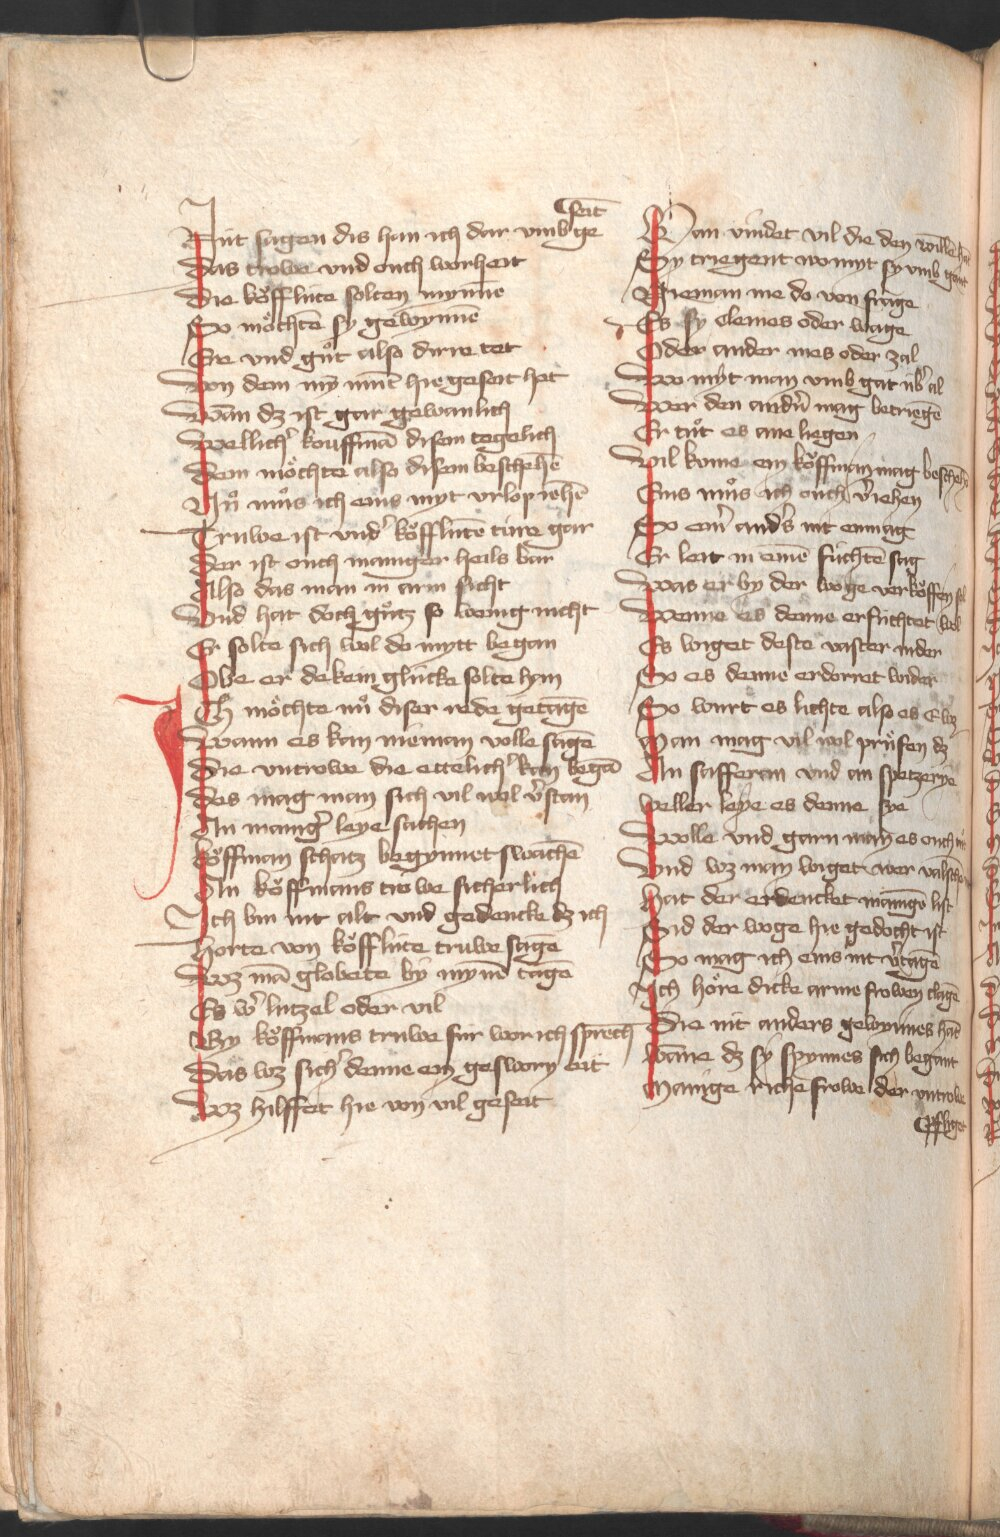 seit
Nüt sagen dis han ich dar vmb ge
Das trowe vnd ouch worheit
Die köfflüte solten mynnē
So möchtē sy gewynnē
Ere vnd gůt also dirre tet
Von dem mȳ mūt hie geseit het
Wān dz ist gar gewanlich
Wellich' kouffmā disem tegelich
Dem möchte also disem beschehē
Nů můs ich eins myt vrlop iehē
Truwe ist vnd' köfflütē türe gar
Der ist ouch maniger heils bar
Also das man in arm sicht
Vnd hat doch gůtz so wenig nicht
Er solte sich wol do mytt began
Obe er dekem glücke solte han
Ich möchte nů diser rede getagē
Wann es kan nieman volle sagē
Die vntrowe die ettelich' kan begā
Des mag man sich vil wol v'stan
An mang' leye sachen
Köffman schatz begynnet swachē
An köffmans trowe sicherlich
Ich bin nit alt vnd gedencke dz ich
Horte von köfflüte truwe sagē
Wz mā globete by mynē tagē
Es w' lützel oder vil
By köffmans truwe für wor ich sprech
Das wz sich' denne ein geswory eit
Wz hilffet hie von vil geseit
Man vindet vil die den willē hāt
Sy triegent womyt sy vmb gent
Nieman me do von frage
Es sy clemes oder wage
Oder ander mes oder zal
Wo myt man vmb gat üb' al
Wer den andn̄ mag betriegē
Er tůt es ane liegen
Vil kume ein köffman mag beschehē
Eins můs ich ouch v'iehen
So ein' and's nit enmag
Er leit in einē füchtē sag
Was er by der woge verköffen sol
Wenne es denne erfüchtet wol
Es wiget deste vaster nider
So es denne erdorret wider
So wurt es lichte also es e wz
Man mag vil wol prüfen dz
An safferan vnd an spetzerye
Weller leye es denne sye
Wolle vnd garn man es ouch
Vnd wz man wiget wer valschē
Hat der erdencket manigē list
Sid der woge hie gedocht ist
So mag ich eins nit v'tagē
Ich höre dicke arme frowen clagē
Die nit anders gewynnes hāt
Wanne dz sy spynnes sich begant
Manige riche frowe der vntrowe
pfliget